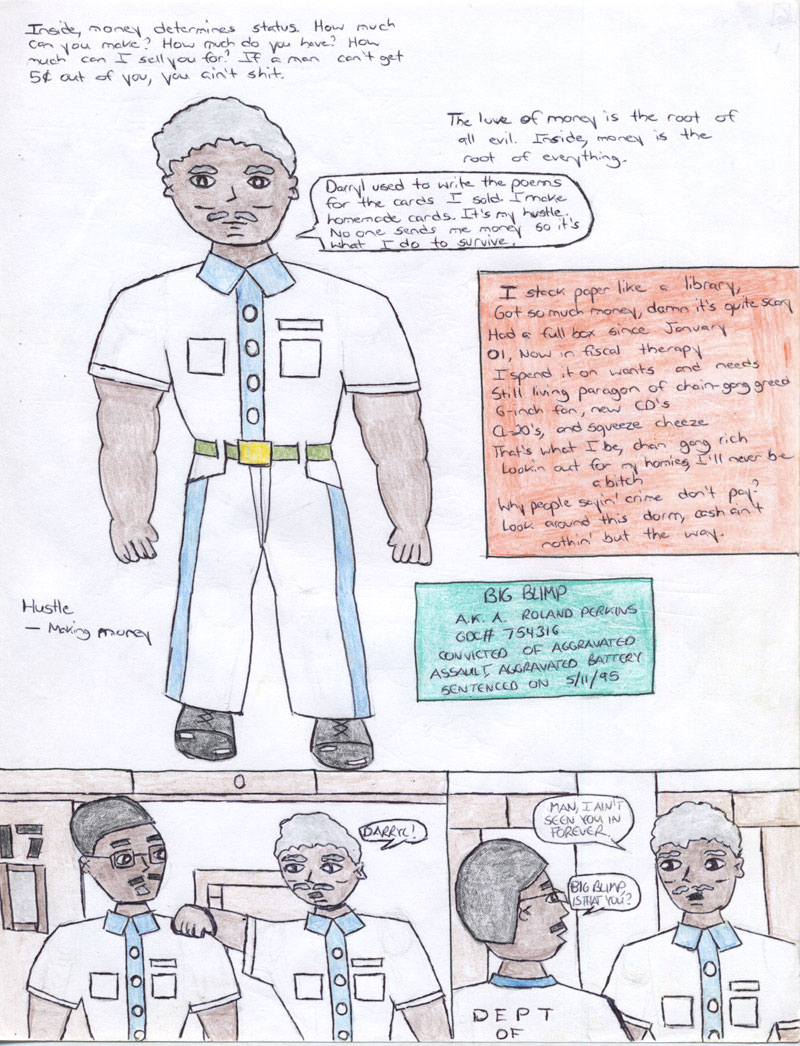 Inside, money determines status. How much
can you make? How much do you have? How
much can I sell you for? If a man can't get
5¢ out of you, you ain't shit.
The luve of money is the root of
all evil. Inside, money is the
root of everything.
Darryl used to write the poems
for the cards I sold. I make
homemade cards. It's my hustle.
No one sends me money so it's
what I do to survive.
I stack paper like a library,
Got so much money, damn it's quite scary
Had a full box since January
01, Now in fiscal therapy
I spend it on wants and needs
Still living paragon of chain-gang greed
6-inch fan, new CD's
CL-20's, and squeeze cheeze
That's what I be, chain gang rich
Lookin out for my homies, I'll never be
a bitch
Why people sayin' crime don't pay?
Look around this dorm, cash ain't
nothin' but the way.
BIG BLIMP
A.K.A. ROLAND PERKINS
GDC# 754316
CONVICTED OF AGGRAVATED
ASSAULT, AGGRAVATED BATTERY
SENTENCED ON 5/11/95
Hustle
— Making money
17
DARRYL!
MAN, I AIN'T
SEEN YOU IN
FOREVER.
BIG BLIMP,
IS THAT YOU?
DEPT
OF